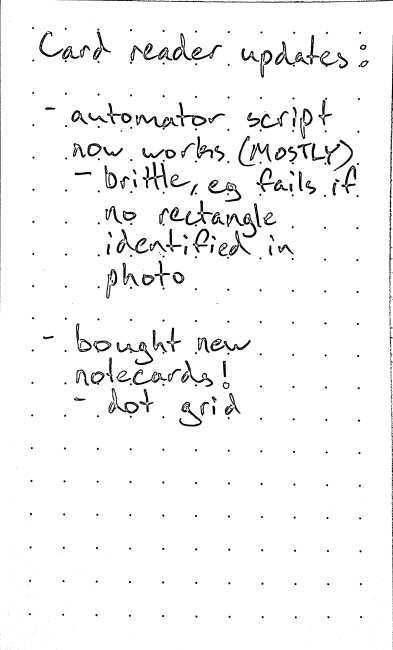 Card reader updates:
- automator script
now works (MOSTLY)
- brittle, eg fails if
no rectangle
identified in
photo
- bought new
notecards!
- dot grid